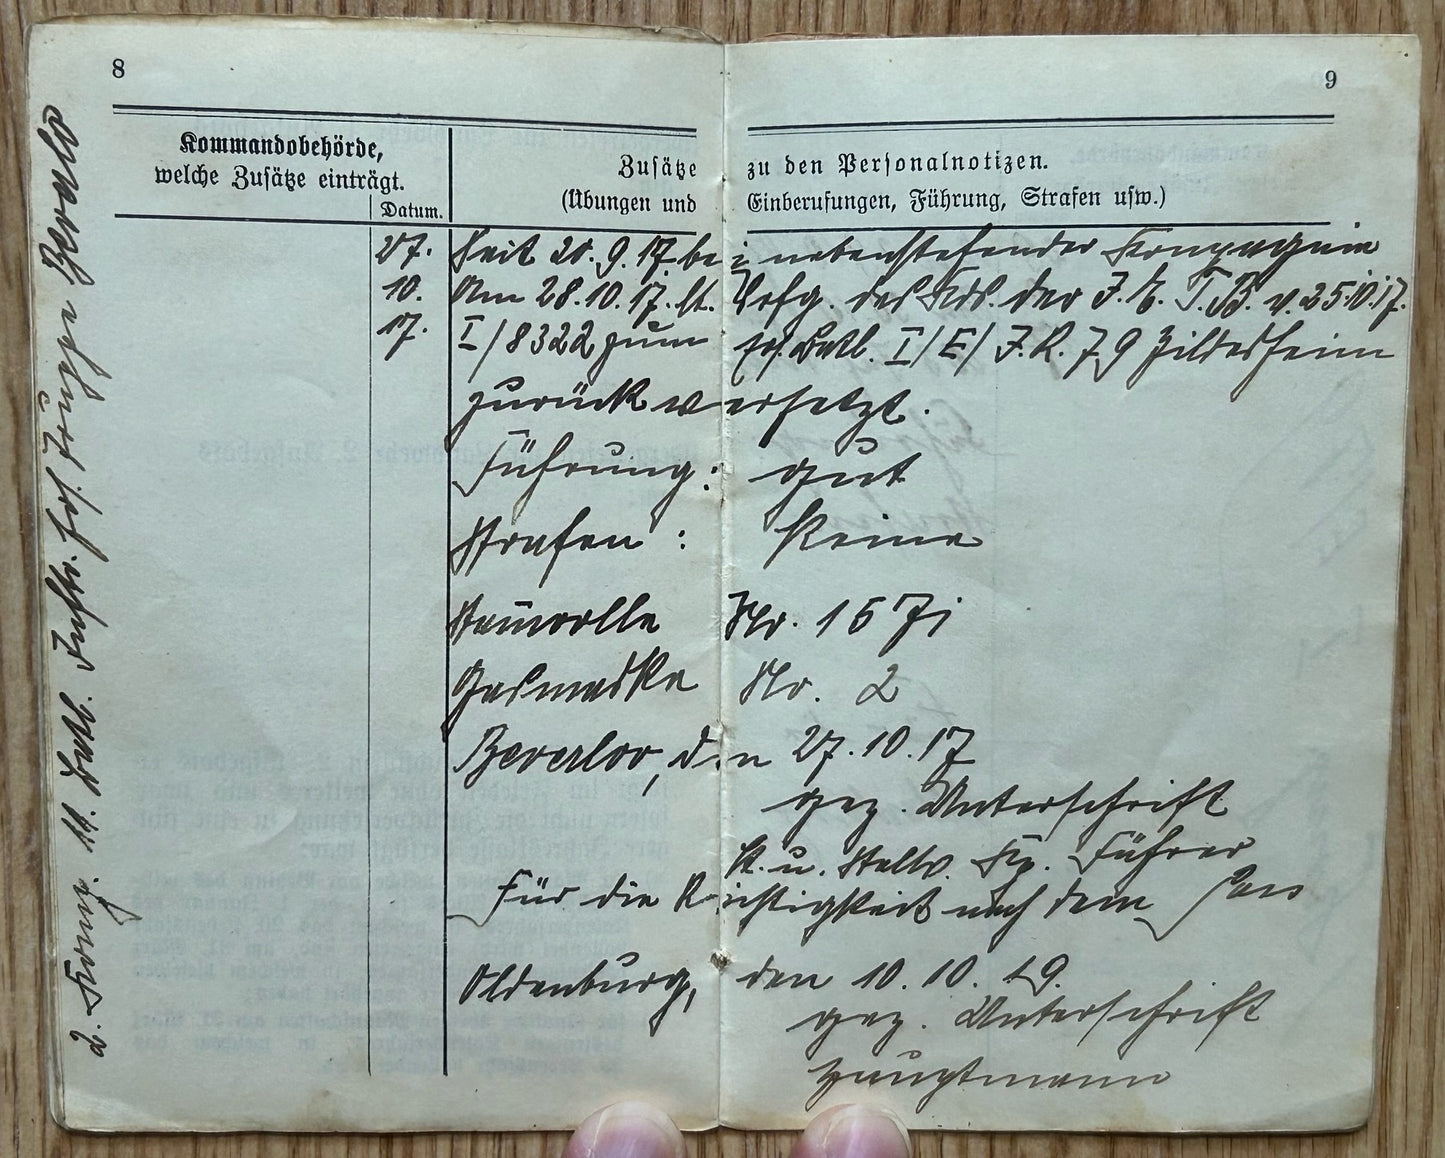 8
9
Kommandobehörde,
welche Zusätze einträgt.
Datum.
Zusätze zu den Personalnotizen.
(Übungen und Einberufungen, Führung, Strafen usw.)
2. Komp. 11. Batl. Inftr. Ers. Truppe Beverlo
27. Seit 20. 9. 17. bei nebenstehender Kompagnie
10. Am 28.10.17. lt. Verfg. des Kds. der J. E. T. B. v. 25.10.17.
17. I/8322 zum Ers. Batl. I/E/J.R. 79 Hildesheim
zurück versetzt.
Führung: gut
Strafen: Keine
Stammrolle Nr. 157i
Gasmaske Nr. 2
Beverloo, den 27.10.17
gez. Unterschrift
Lt. u. Stellv. Kp. Führer
Für die Richtigkeit nach dem Pass
Oldenburg, den 10. 10. 19.
gez. Unterschrift
Hauptmann